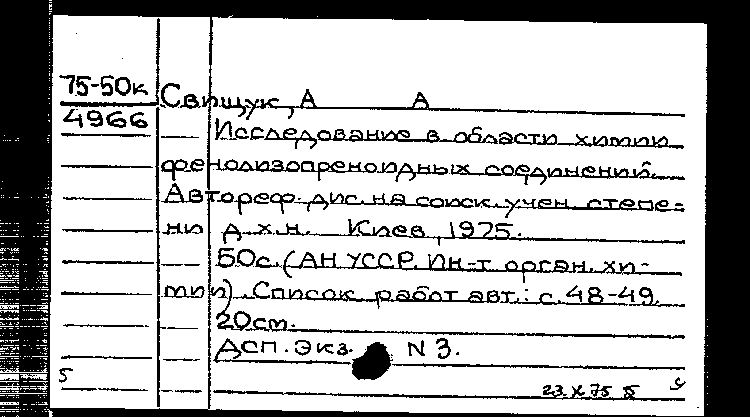 75-50к
4966
Свищук, А А
Исследование в области химии
фенолизопреноидных соединений.
Автореф. дис. на соиск. учен. степе-
ни д.х.н. Киев, 1975.
50с. (АН УССР. Ин-т орган. хи-
мии). Список работ авт.: с. 48-49.
20см.
ДСП. Экз. N 3.
5
23 X 75